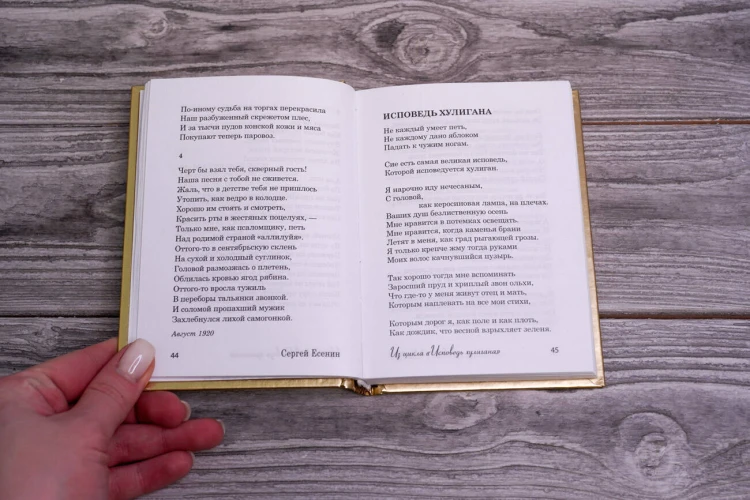 По-иному судьба на торгах перекрасила
Наш разбуженный скрежетом плес,
И за тысчи пудов конской кожи и мяса
Покупают теперь паровоз.
4
Черт бы взял тебя, скверный гость!
Наша песня с тобой не сживется.
Жаль, что в детстве тебя не пришлось
Утопить, как ведро в колодце.
Хорошо им стоять и смотреть,
Красить рты в жестяных поцелуях, —
Только мне, как псаломщику, петь
Над родимой страной «аллилуйя».
Оттого-то в сентябрьскую склень
На сухой и холодный суглинок,
Головой размозжась о плетень,
Облилась кровью ягод рябина.
Оттого-то вросла тужиль
В переборы тальянки звонкой.
И соломой пропахший мужик
Захлебнулся лихой самогонкой.
Август 1920
44
Сергей Есенин
ИСПОВЕДЬ ХУЛИГАНА
Не каждый умеет петь,
Не каждому дано яблоком
Падать к чужим ногам.
Сие есть самая великая исповедь,
Которой исповедуется хулиган.
Я нарочно иду нечесаным,
С головой,
как керосиновая лампа, на плечах.
Ваших душ безлиственную осень
Мне нравится в потемках освещать.
Мне нравится, когда каменья брани
Летят в меня, как град рыгающей грозы.
Я только крепче жму тогда руками
Моих волос качнувшийся пузырь.
Так хорошо тогда мне вспоминать
Заросший пруд и хриплый звон ольхи,
Что где-то у меня живут отец и мать,
Которым наплевать на все мои стихи,
Которым дорог я, как поле и как плоть,
Как дождик, что весной взрыхляет зеленя.
Из цикла «Исповедь хулигана»
45